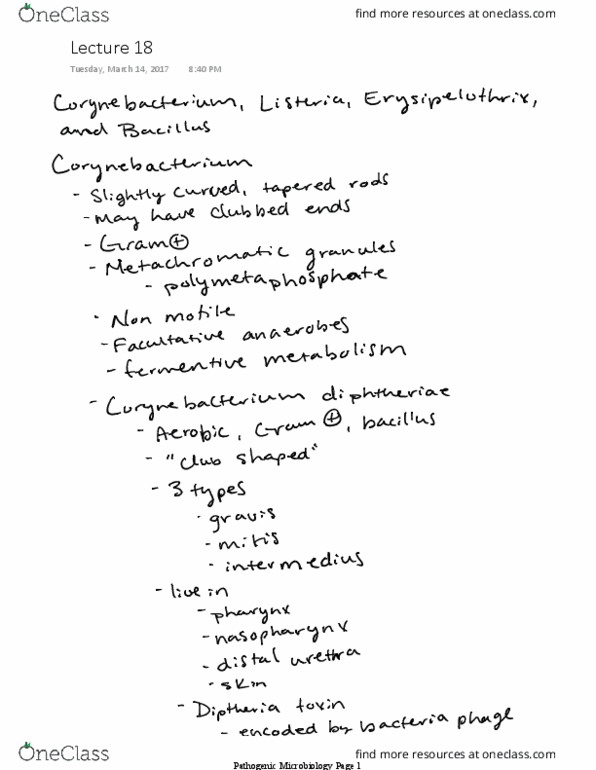 OneClass
find more resources at oneclass.com
Lecture 18
Tuesday, March 14, 2017 8:40 PM
Corynebacterium, Listeria, Erysipelothrix,
and Bacillus
Corynebacterium
- Slightly curved, tapered rods
- May have clubbed ends
- Gram ⊕
- Metachromatic granules
- polymetaphosphate
- Non motile
- Facultative anaerobes
- fermentive metabolism
- Corynebacterium diphtheriae
- Aerobic, Gram ⊕, bacillus
- "club shaped"
- 3 types
- gravis
- mitis
- intermedius
- live in
- pharynx
- nasopharynx
- distal urethra
- skin
- Diptheria toxin
- encoded by bacteria phage
OneClass
find more resources at oneclass.com
Pathogenic Microbiology Page 1